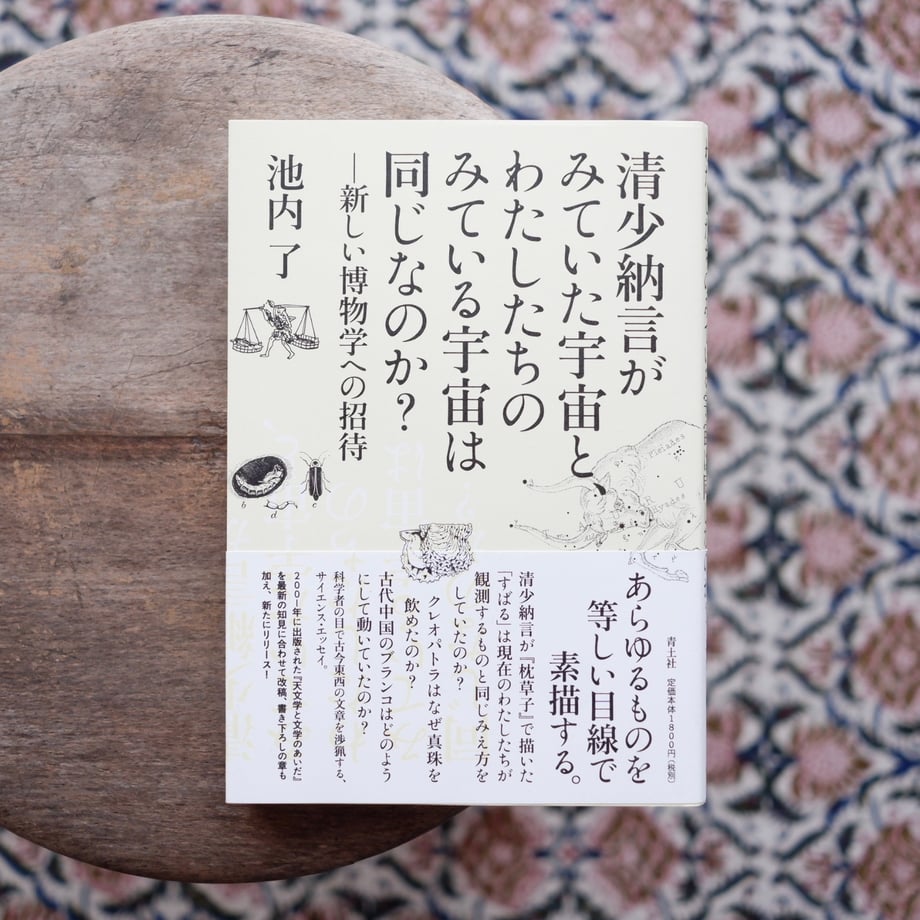 清少納言が
みていた宇宙と
わたしたちの
みている宇宙は
同じなのか？
—新しい博物学への招待
池内 了
Pleiades
Hyades
b
d
e
あらゆるものを
等しい目線で
素描する。
清少納言が『枕草子』で描いた
「すばる」は現在のわたしたちが
観測するものと同じみえ方を
していたのか？
クレオパトラはなぜ真珠を
飲めたのか？
古代中国のブランコはどのよう
にして動いていたのか？
科学者の目で古今東西の文章を渉猟する、
サイエンス・エッセイ。
2001年に出版された『天文学と文学のあいだ』
を最新の知見に合わせて改稿、書き下ろしの章も
加え、新たにリリース！
青土社 定価本体1800円（税別）